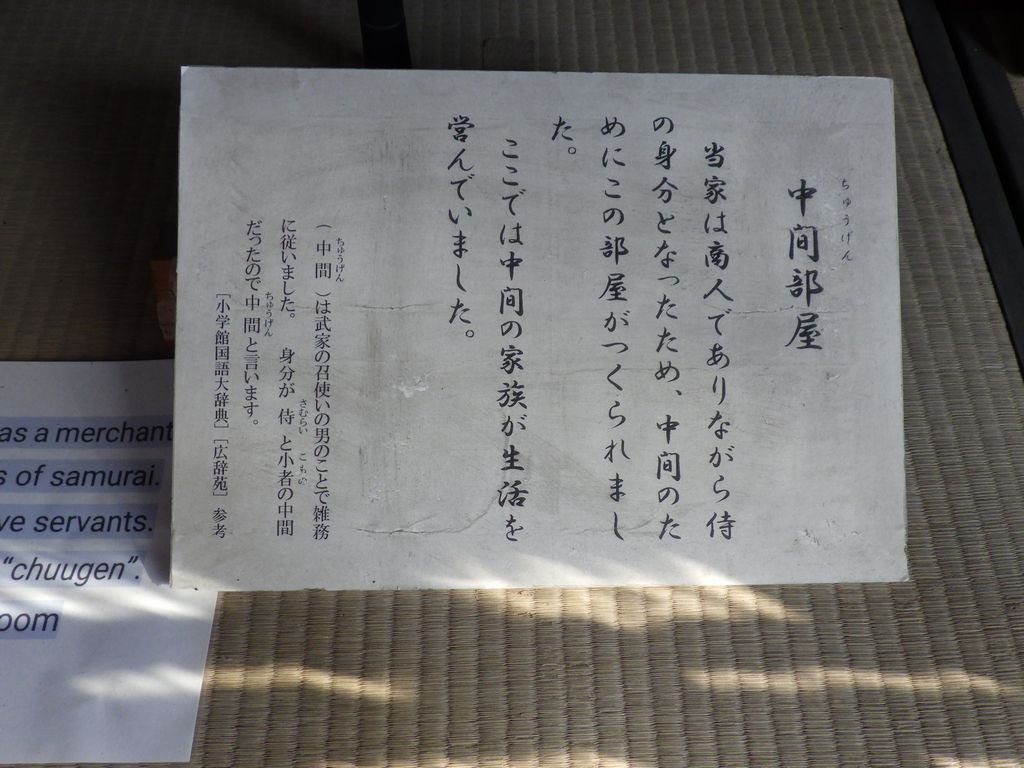 ちゅうげん
中間部屋
当家は商人でありながら侍
の身分となったため、中間のた
めにこの部屋がつくられまし
た。
ここでは中間の家族が生活を
営んでいました。
ちゅうげん
(中間)は武家の召使いの男のことで雑務
さむらい こもの
に従いました。 身分が侍と小者の中間
ちゅうげん
だったので中間と言います。
[小学館国語大辞典] [広辞苑] 参考
as a merchant
s of samurai.
ve servants.
"chuugen".
oom